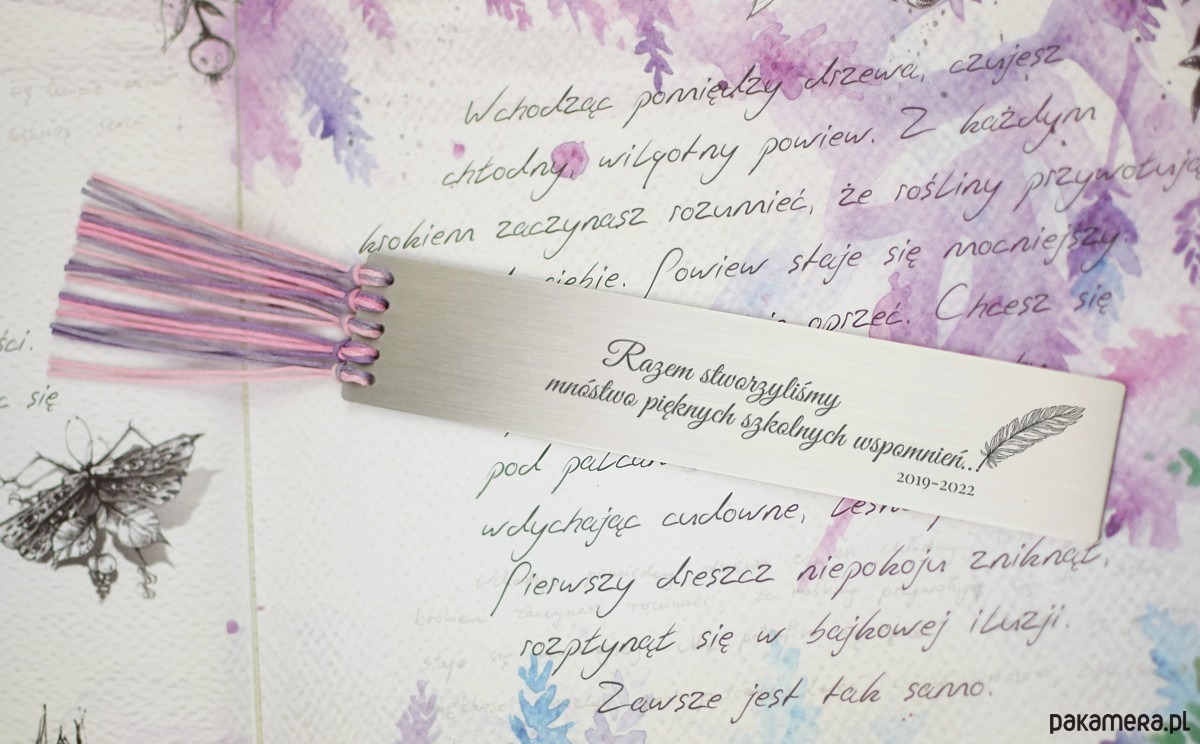 Wchodząc pomiędzy drzewa, czujesz
chłodny, wilgotny powiew. Z każdym
krokiem zaczynasz rozumieć, że rośliny przywołują
siebie. Powiew staje się mocniejszy.
oprzeć. Chcesz się
ści.
się
Razem stworzyliśmy
mnóstwo pięknych szkolnych wspomnień...
2019-2022
pod
wdychając cudowne,
Pierwszy dreszcz niepokoju zniknął,
rozpłynął się w bajkowej iluzji.
Zawsze jest tak samo.
pakamera.pl